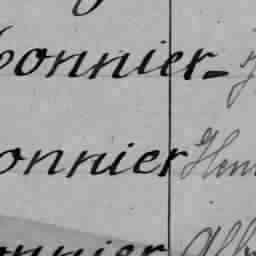 bonnier-
onnier Hen
onnier Alb